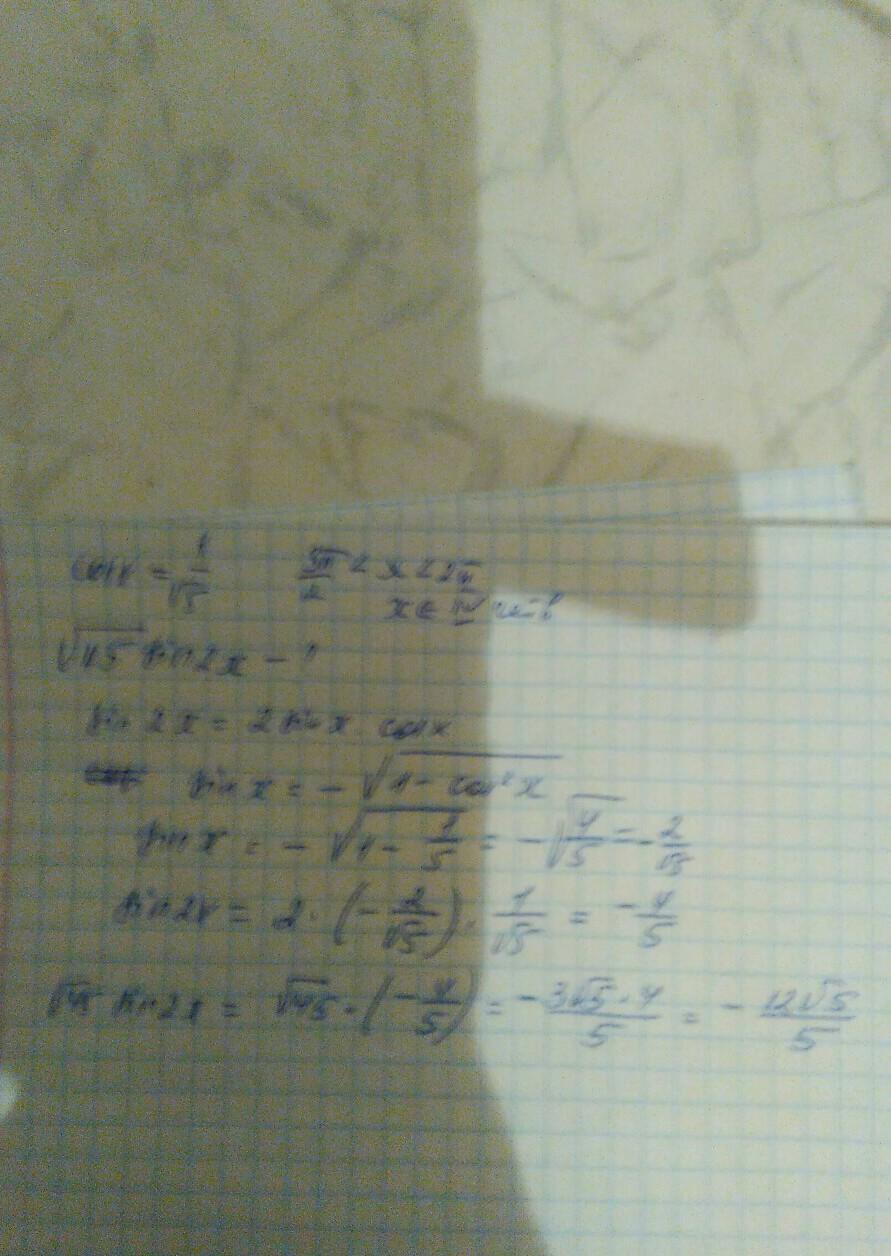 cos x = 1/√5 3π/2 < x < 2π
x ∈ IV четв
√45 sin 2x - ?
sin 2x = 2 sin x · cos x
sin x = - √(1 - cos² x)
sin x = - √(1 - 1/5) = - √(4/5) = - 2/√5
sin 2x = 2 · (- 2/√5) · 1/√5 = - 4/5
√45 sin 2x = √45 · (- 4/5) = - 3√5 · 4/5 = - 12√5/5